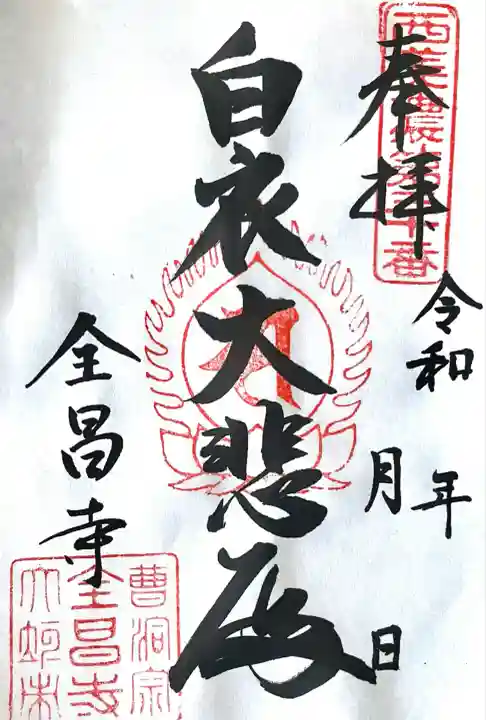 奉拝
令和
年
月
日
白衣大悲殿
全昌寺
曹洞宗
全昌寺